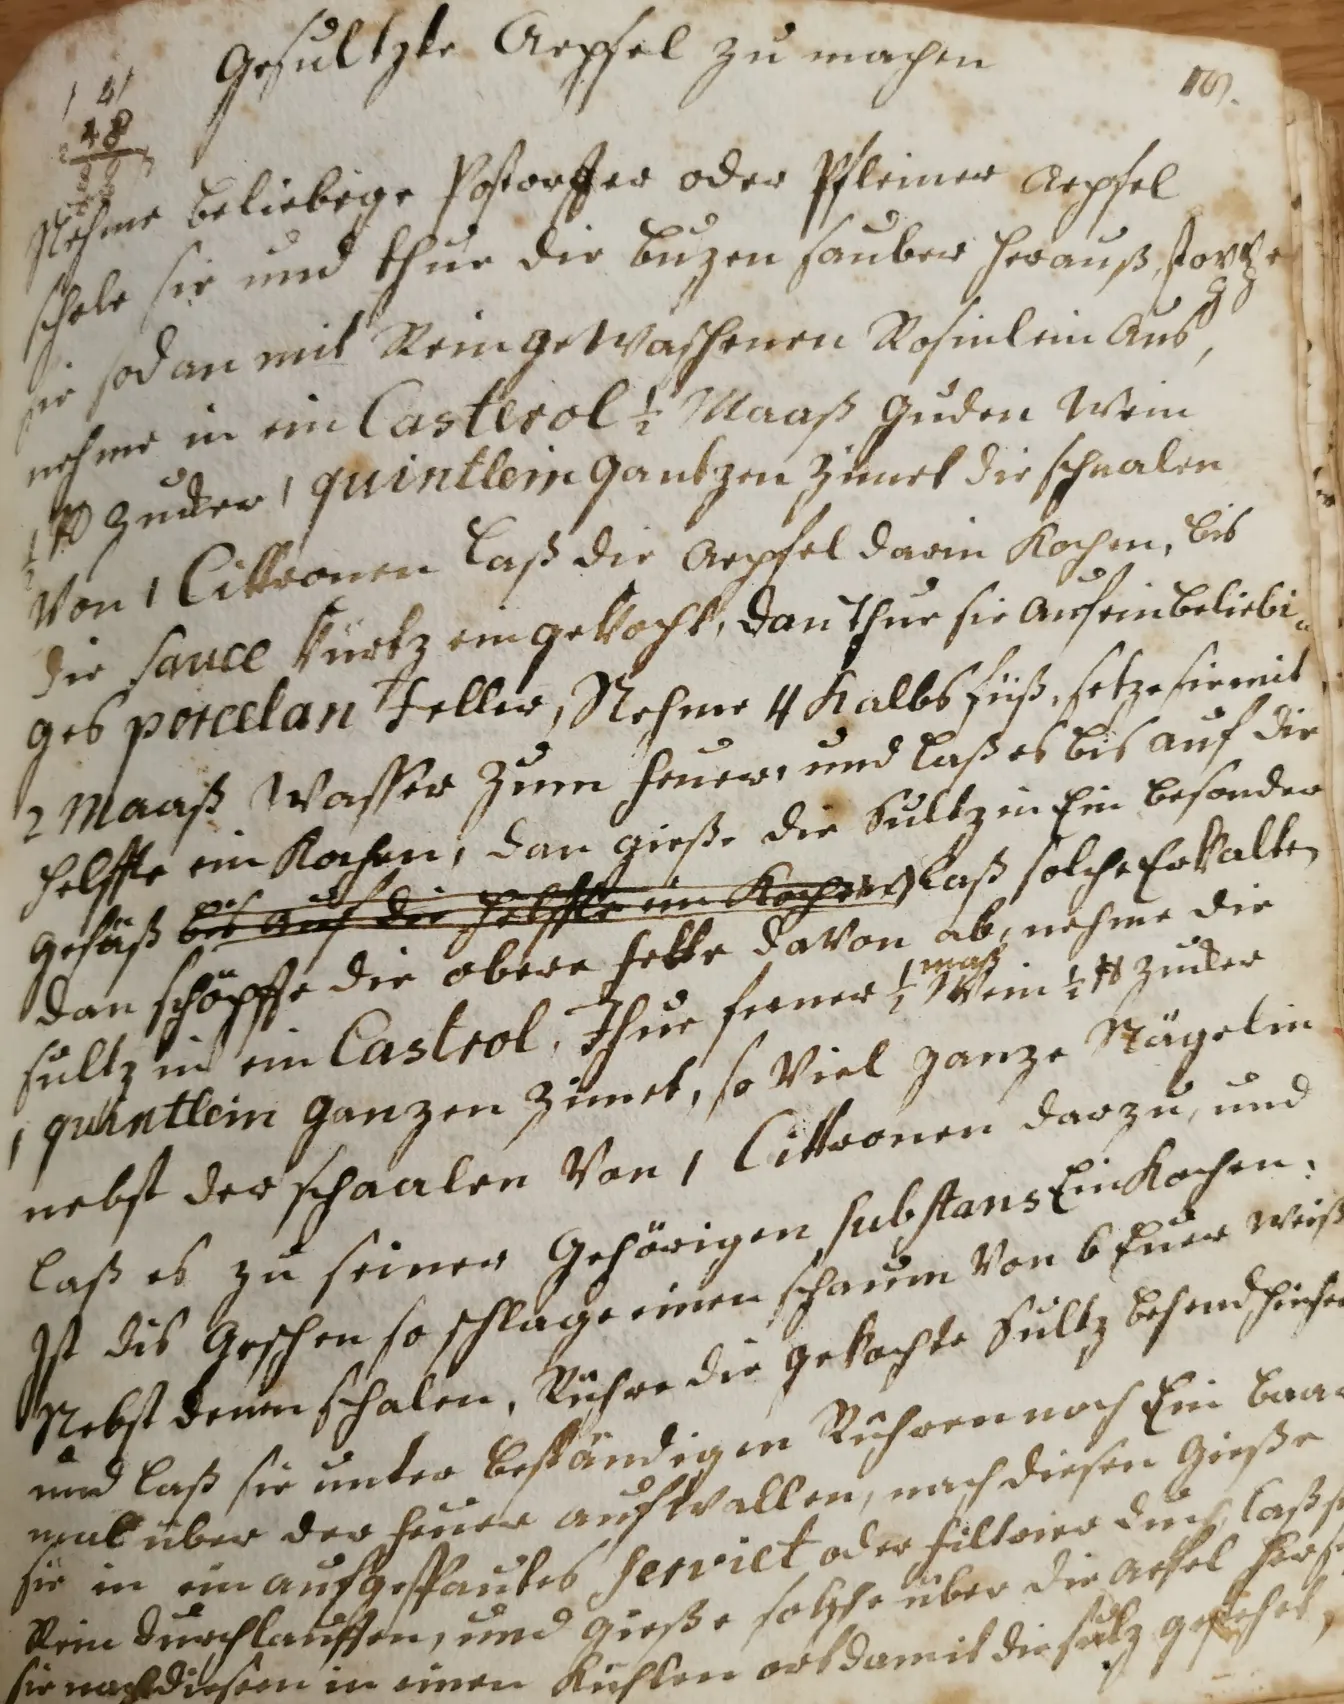 Gesultzte Aepfel zu machen
Nehme beliebige Postorffer oder Pfleiner Aepfel
schele sie und thue die buzen sauber herauß,
sie sodan mit Rein gewaschenen Rosinlein Aus,
nehme in ein Casterol ½ Maaß guden Wein
½ ℔ Zucker 1 quintlein gantzen Zimet die schaalen
Von 1 Cittronen laß die Aepfel darin Kochen, bis
die sauce kurtz ein gekocht, dan thue sie Auf ein beliebi-
ges porcelan Teller, Nehme 4 Kalbs füß, setze sie mit
2 Maaß Wasser zum feuer, und laß es bis auf die
helffte ein Kochen, dan gieße die Sultz in Ein besonder
gefäß bis auf die helffte ein Kochen laß solche Erkalten
dan schöpffe die obere fette davon ab, nehme die
sultz in ein Castrol, Thue ferner ½ maß Wein ½ ℔ Zucker
1 quintlein ganzen Zimet, so Viel ganze Nägelin
nebst der schaalen Von 1 Cittronen darzu, und
laß es zu seiner Gehörigen substans Ein Kochen.
Ist dis Geschen so schlage einen schaum Von 6 Euer Weiß
Nebst denen schalen, Rühre die gekochte Sultz behend
und laß sie unter beständigen Rühren noch Ein baar
mal über der feuer aufwallen, nach diesen Gieße
sie in ein aufgespantes serviet oder filtrier duch, laß
Rein durchlauffen, und gieße solche über die Aefel
sie nach diesem in einen Kühlen ort damit die sultz gestehet,